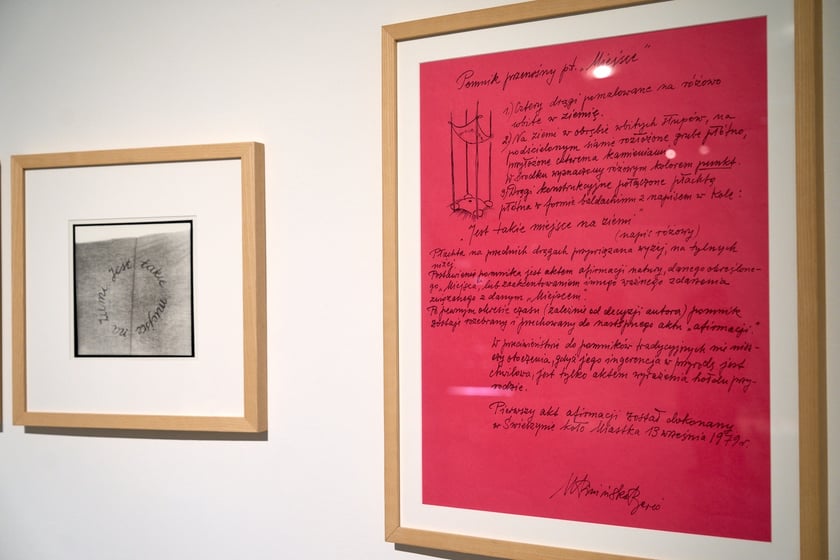 Jest takie miejsce na ziemi
Pomnik przenośny pt. „Miejsce"
1) Cztery drągi pomalowane na różowo
wbite w ziemię.
2) Na ziemi w obrębie wbitych słupów, na
podścielonym sianie rozłożone grube płótno,
wyłożone czterema kamieniami.
W środku wyznaczony różowym kolorem punkt.
3) Drągi konstrukcyjne połączone płachtą
płótna w formie baldachimu z napisem w kole:
„Jest takie miejsce na ziemi"
(napis różowy)
Płachta na przednich drągach przywiązana wyżej, na tylnych
niżej.
Postawienie pomnika jest aktem afirmacji natury, danego określone-
go „Miejsca", lub zaakcentowaniem innego ważnego zdarzenia
związanego z danym „Miejscem".
Po pewnym okresie czasu (zależnie od decyzji autora) pomnik
zostaje rozebrany i przechowany do następnego aktu „afirmacji."
W przeciwieństwie do pomników tradycyjnych nie nisz-
czy otoczenia, gdyż jego ingerencja w przyrodę jest
chwilowa, jest tylko aktem wyrażenia hołdu przy-
rodzie.
Pierwszy akt afirmacji został dokonany
w Świeszynie koło Miastka 13 września 1979 r.